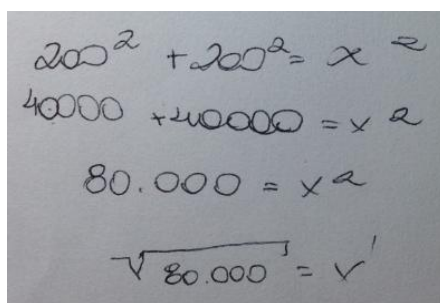 200² + 200² = x²
40000 + 40000 = x²
80.000 = x²
√80.000 = x